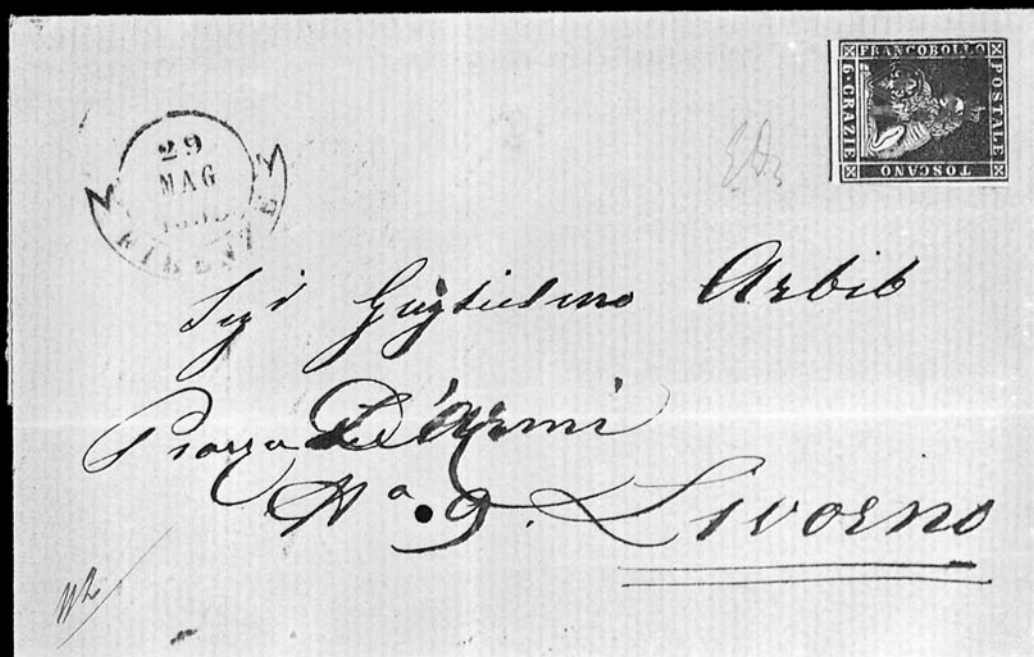 FRANCOBOLLO
POSTALE
TOSCANO
6 · CRAZIE
29
MAG
FIRENZE
Sigr Guglielmo Arbib
Piazza D'armi
No. 9. Livorno